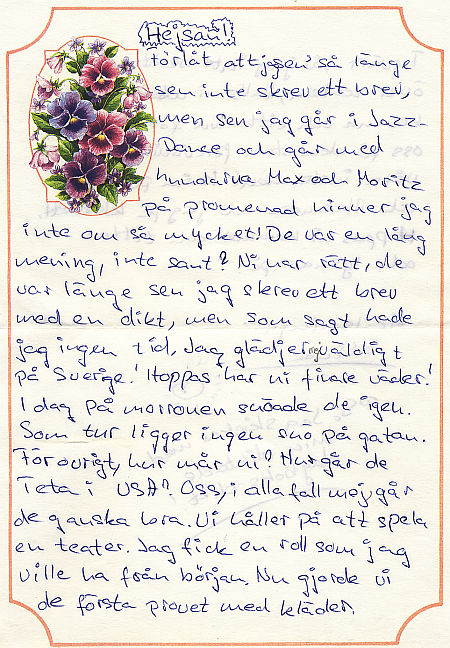 Hejsan!
Förlåt att jag sen så länge
sen inte skrev ett brev,
men sen jag går i Jazz-
Dance och går med
hundarna Max och Moritz
på promenad hinner jag
inte om så mycket! De var en lång
mening, inte sant? Ni har rätt, de
var länge sen jag skrev ett brev
med en dikt, men som sagt hade
jag ingen tid. Jag glädjer mej väldigt
på Sverige! Hoppas har ni finare väder!
I dag på morronen snöade de igen.
Som tur ligger ingen snö på gatan.
För övrigt, hur mår ni? Hur går de
Teta i USA? Oss, i alla fall mej går
de ganska bra. Vi håller på att spela
en teater. Jag fick en roll som jag
ville ha från början. Nu gjorde vi
de första provet med kläder.